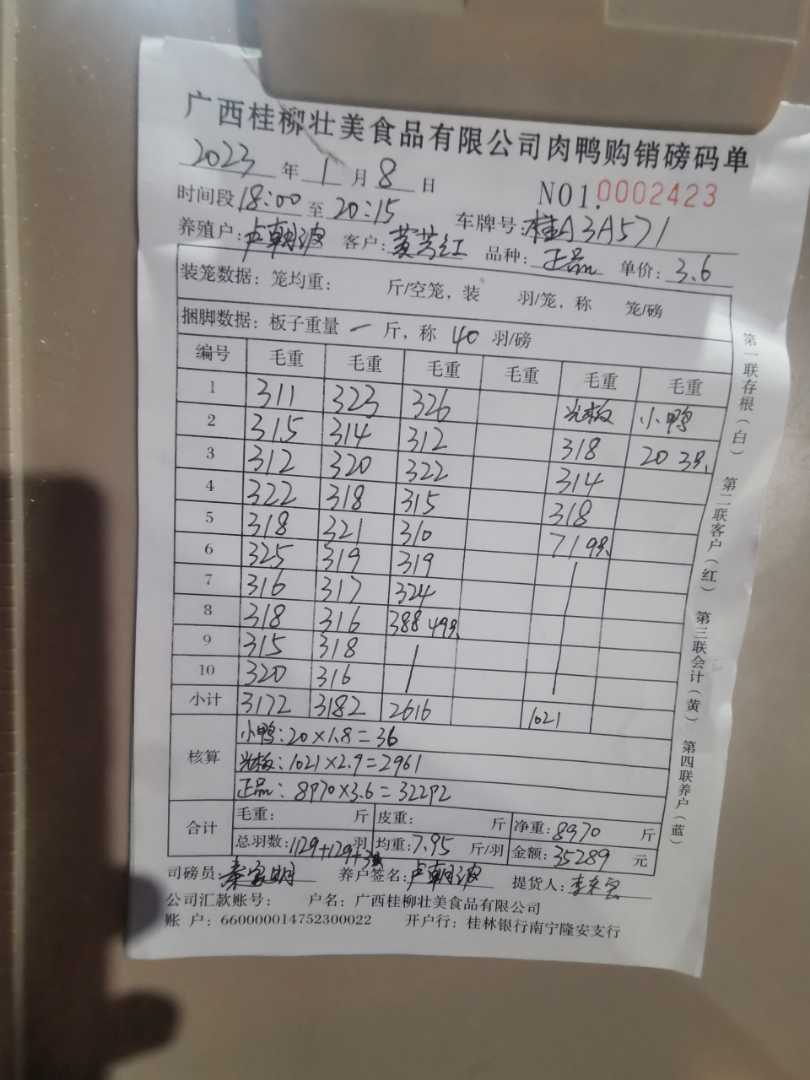 广西桂柳壮美食品有限公司肉鸭购销磅码单
2023年1月8日 NO1.0002423
时间段18:00至20:15 车牌号:桂A3A571
养殖户:卢朝波 客户:黄芳红 品种:正品 单价:3.6
装笼数据:笼均重: 斤/空笼,装 羽/笼,称 笼/磅
捆脚数据:板子重量 一 斤,称 40 羽/磅
编号 毛重 毛重 毛重 毛重 毛重 毛重
1 311 323 326 光板 小鸭
2 315 314 312 318 20 3只
3 312 320 322 314
4 322 318 315 318
5 318 321 310 71 9只
6 325 319 319
7 316 317 324
8 318 316 388 49只
9 315 318
10 320 316
小计 3172 3182 2616 1021
核算 小鸭:20×1.8=36
光板:1021×2.9=2961
正品:8970×3.6=32292
合计 毛重: 斤 皮重: 斤 净重:8970 斤
总羽数:1129+129+3只 羽 均重:7.95 斤/羽 金额:35289 元
司磅员: 养户签名:卢朝波 提货人:
公司汇款账号: 户名:广西桂柳壮美食品有限公司
账 户:660000014752300022 开户行:桂林银行南宁隆安支行
第一联存根(白) 第二联客户(红) 第三联会计(黄) 第四联养户(蓝)